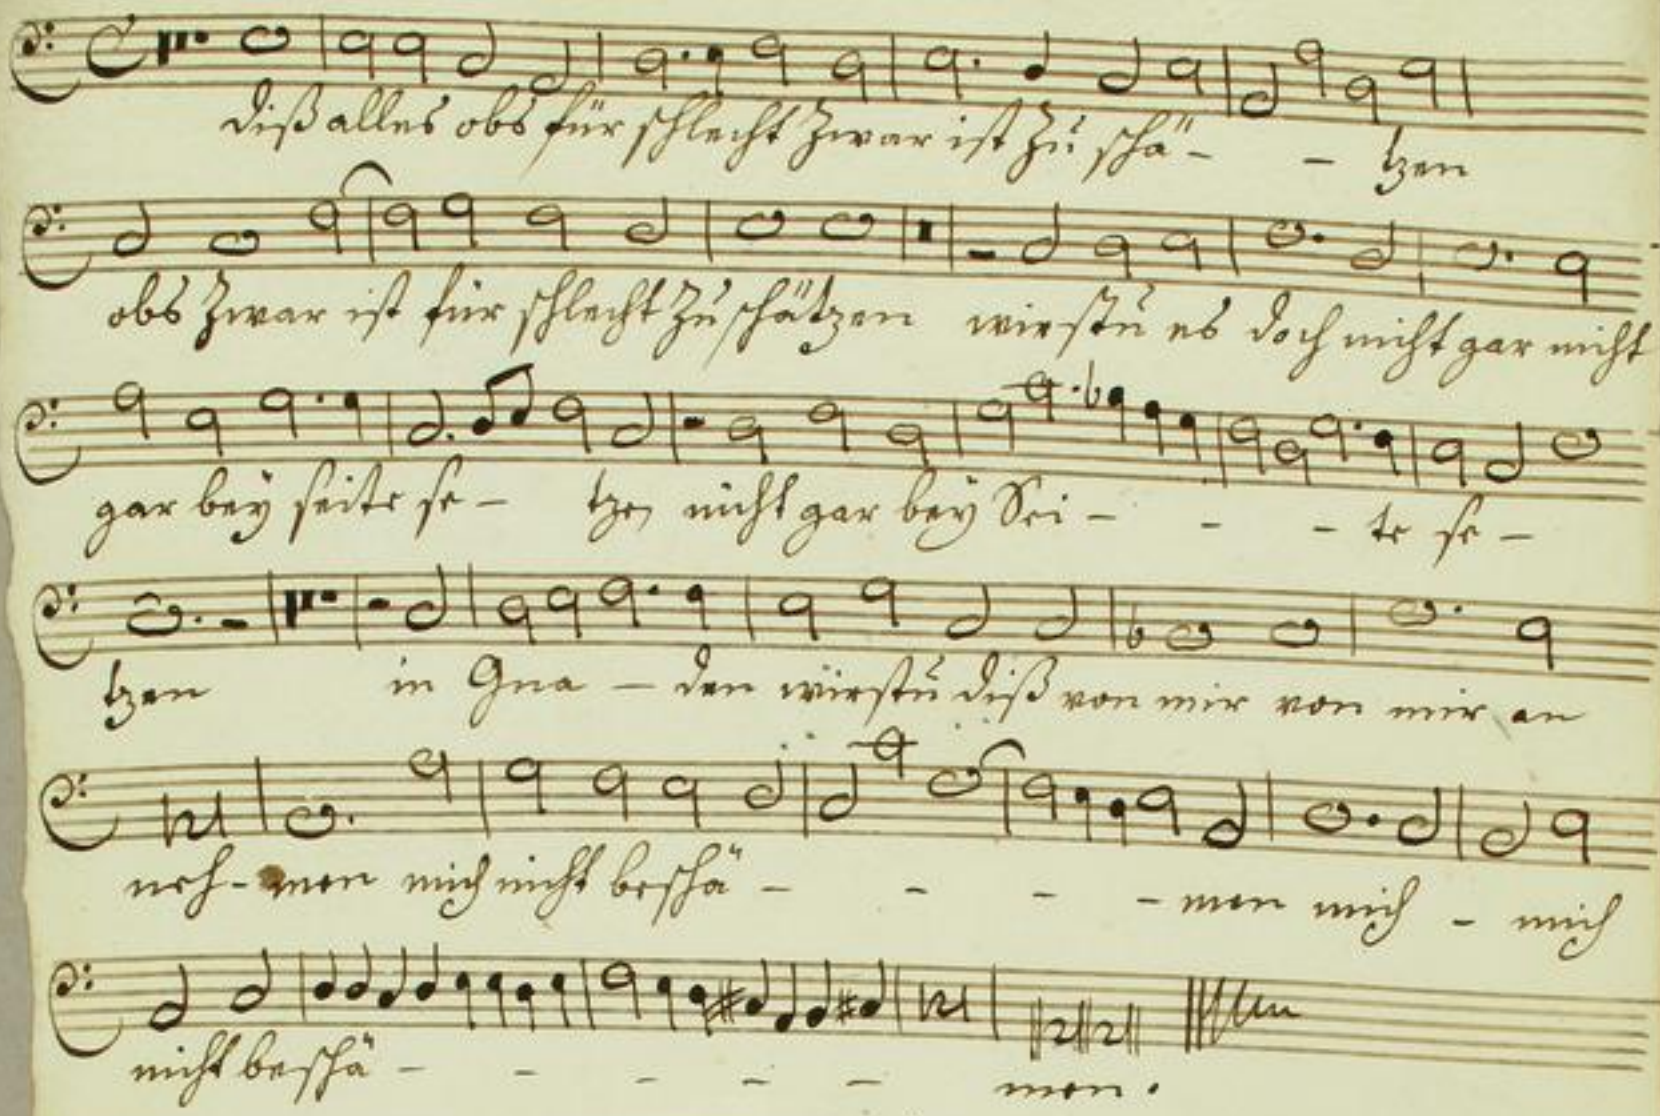 diß alles obs für schlecht Zwar ist Zu schä - - tzen
obs Zwar ist für schlecht Zu schätzen wirstu es doch nicht gar nicht
gar bey seite se - tzen nicht gar bey Sei - - - te se -
tzen in Gna - den wirstu diß von mir von mir an
neh - men mich nicht beschä - - - - men mich - mich
nicht beschä - - - - - men .